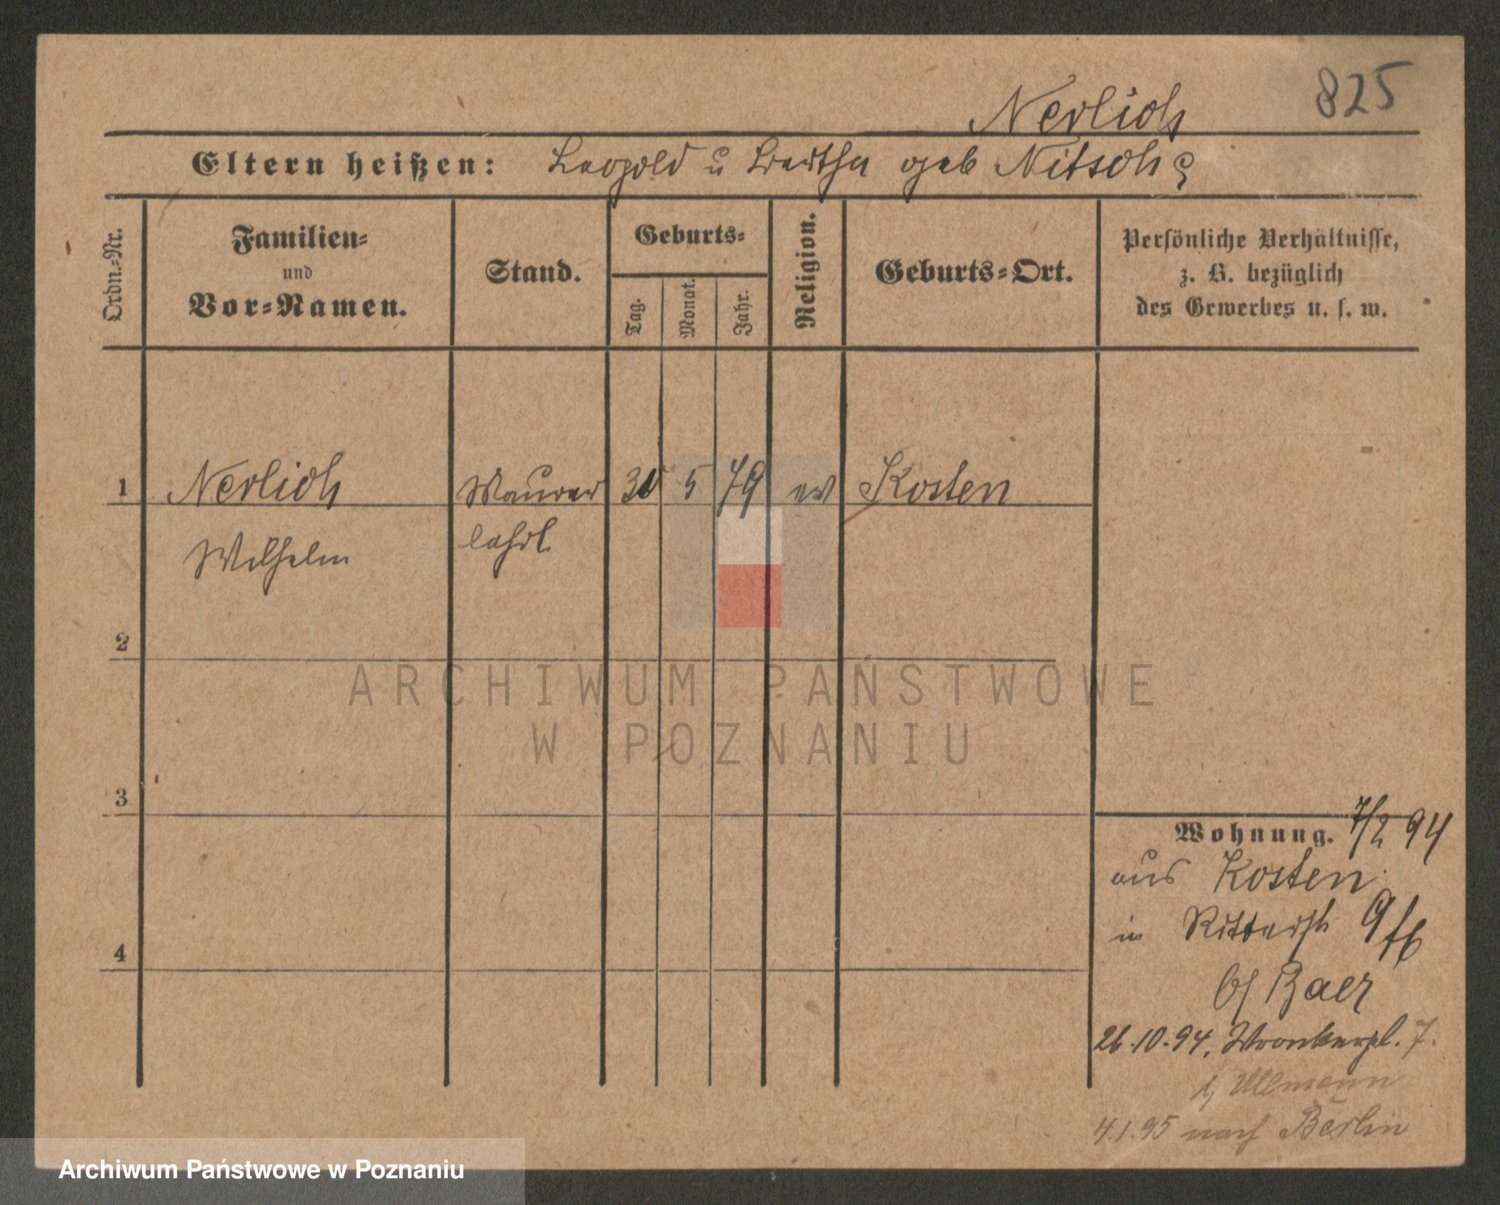 825
Nerlich
Eltern heißen: Leopold u Bertha geb Nitschs
Ordn.-Nr.
Familien-
und
Vor-Namen.
Stand.
Geburts-
Tag.
Monat.
Jahr.
Religion.
Geburts-Ort.
Persönliche Verhältnisse,
z. B. bezüglich
des Gewerbes u. s. w.
1 Nerlich Maurer 30 5 79 ev Kosten
Wilhelm lehrl.
2
3
4
Wohnung. 7/2 94
aus Kosten
in Ritterstr 9
b/ Baer
26.10.94. Wronkerpl. 7.
b/ Ullmann
4.1.95 nach Berlin
ARCHIWUM PAŃSTWOWE
W POZNANIU
Archiwum Państwowe w Poznaniu